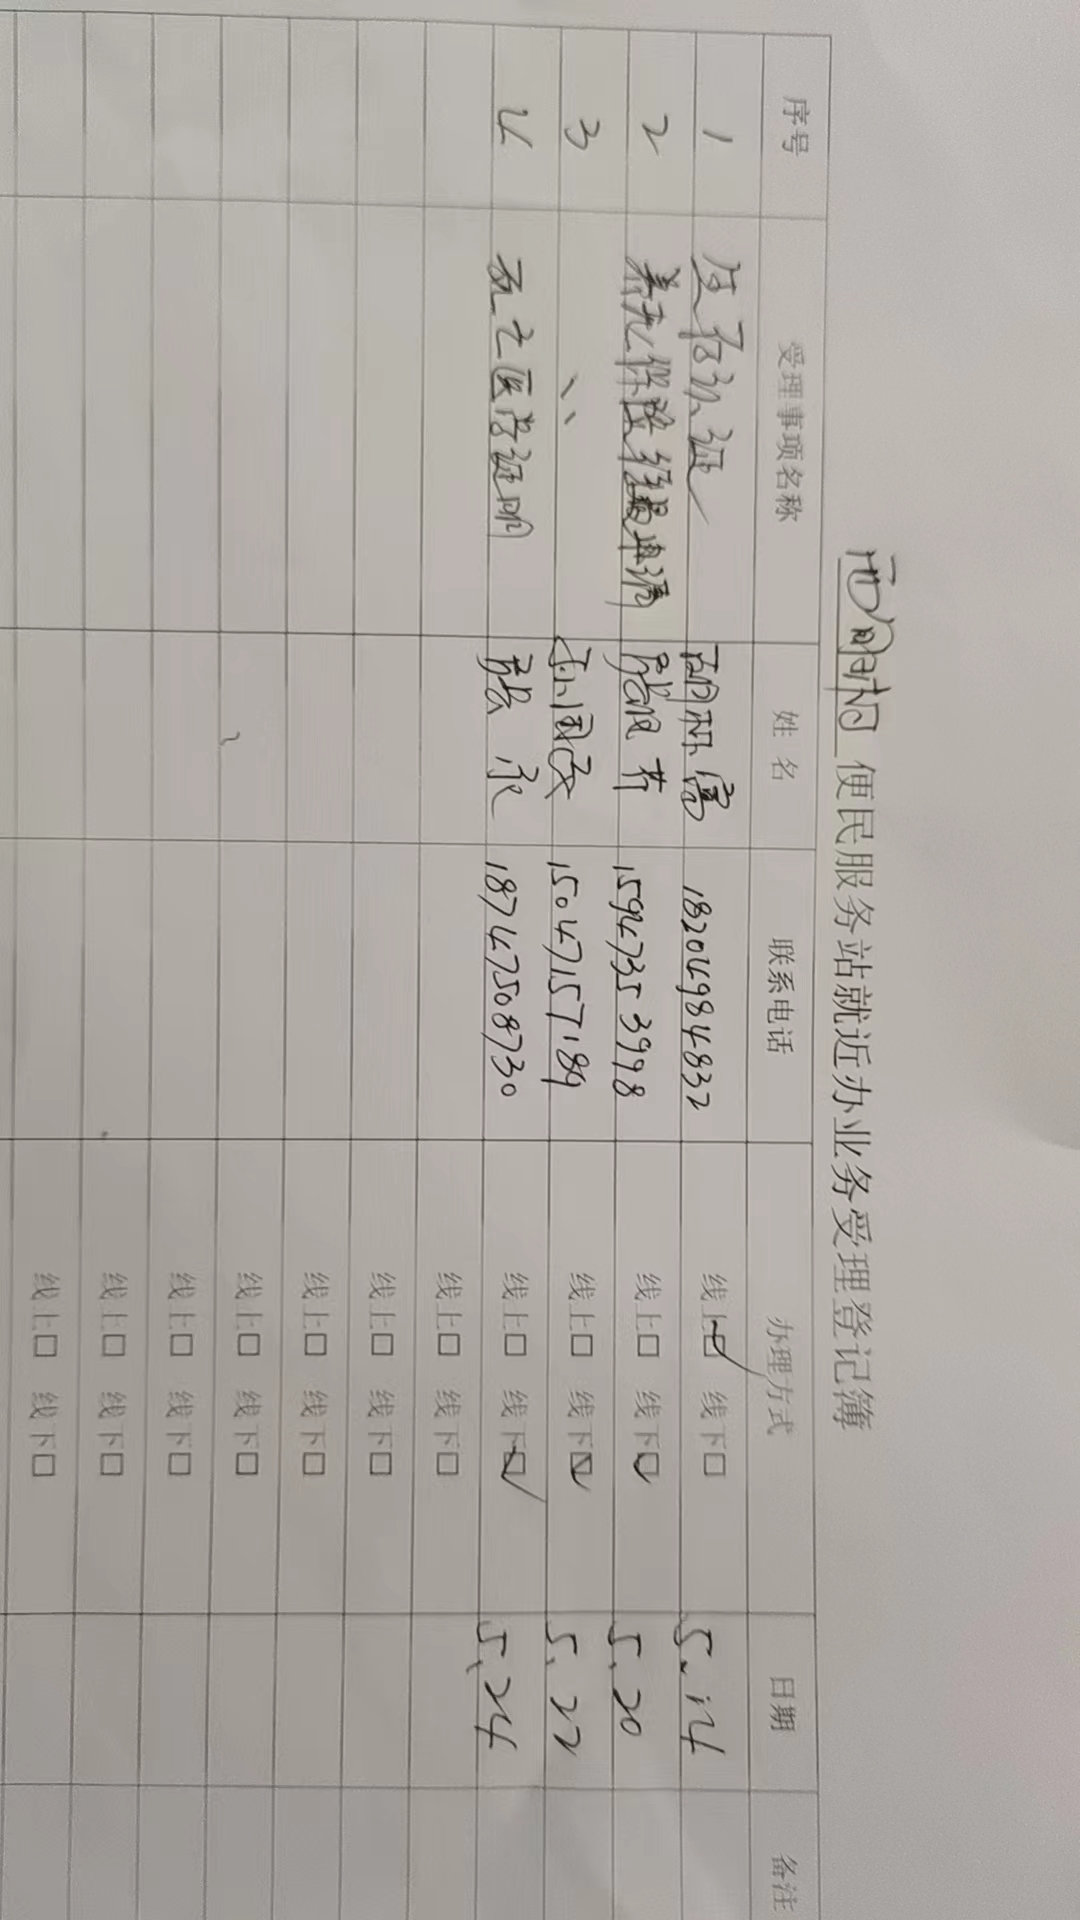 便民服务站就近办业务受理登记簿
序号 受理事项名称 姓名 联系电话 办理方式 日期 备注
1 18204984832 线上☑ 线下□ 5.14
2 养老保险 申请 15947353998 线上□ 线下☑ 5.20
3 〃 孙国政 15047157189 线上□ 线下☑ 5.22
4 死亡医学证明 张永 18747508730 线上□ 线下☑ 5.24
线上□ 线下□
线上□ 线下□
线上□ 线下□
线上□ 线下□
线上□ 线下□
线上□ 线下□
线上□ 线下□